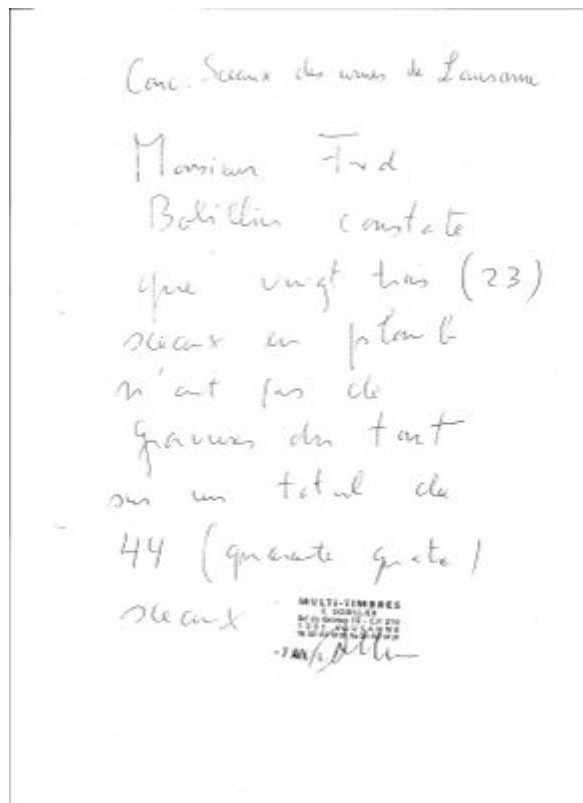 Conc. Sceaux des urnes de Lausanne
Monsieur Fred
Bobillier constate
que vingt trois (23)
sceaux en plomb
n'ont pas de
gravures du tout
sur un total de
44 (quarante quatre)
sceaux
MULTI-TIMBRES
F. BOBILLIER
LAUSANNE